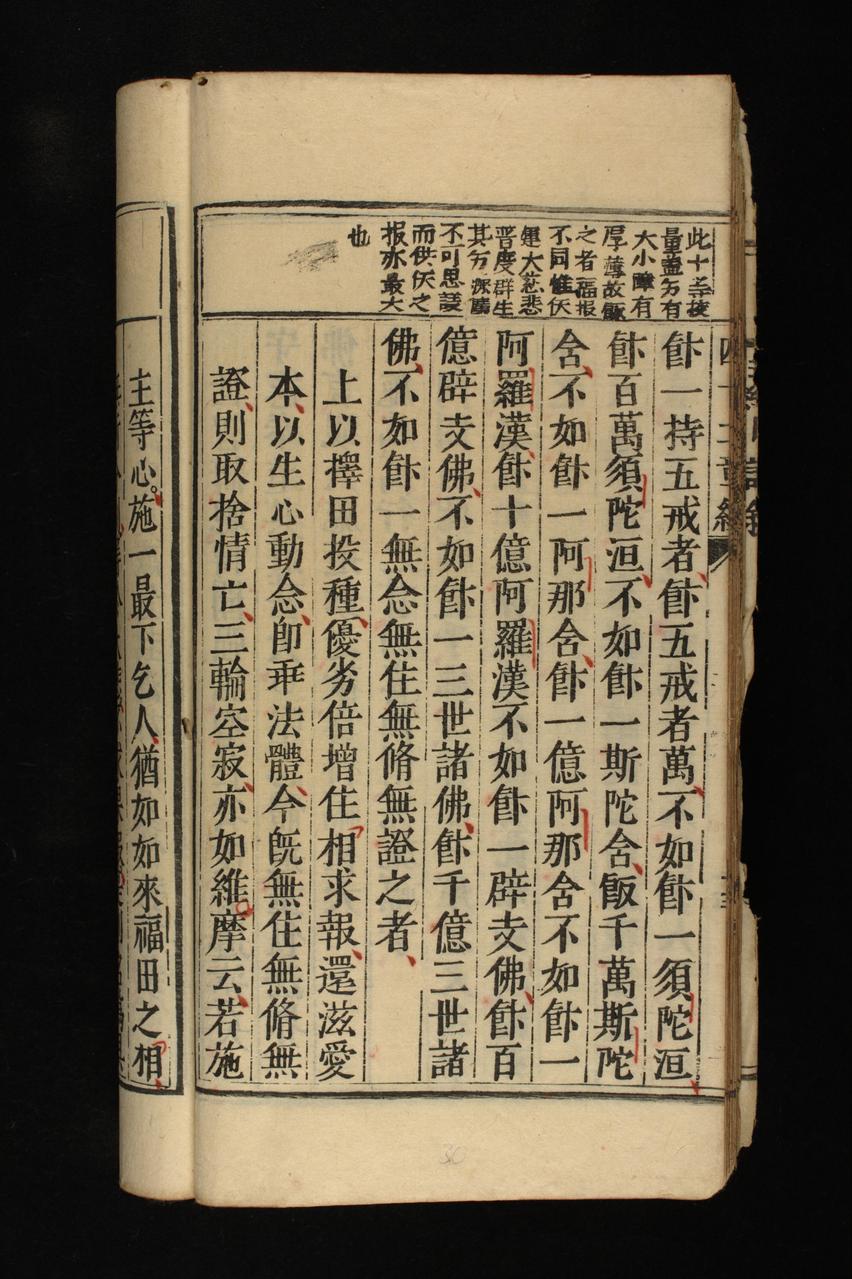 此十等校
量蓋分有
大小障有
厚薄故飯
之者福报
不同惟佛
運大慈悲
普度群生
其分深廣
不可思議
而供佛之
报亦最大
也
飰一持五戒者、飰五戒者萬、不如飰一須陀洹、
飰百萬須陀洹、不如飰一斯陀含、飯千萬斯陀
含、不如飰一阿那含、飰一億阿那含不如飰一
阿羅漢、飰十億阿羅漢不如飰一辟支佛、飰百
億辟支佛、不如飰一三世諸佛、飰千億三世諸
佛、不如飰一無念無住無脩無證之者、
上以擇田投種、優劣倍增住相求報、還滋愛
本、以生心動念、卽乖法體、今旣無住無脩無
證、則取捨情亡、三輪空寂、亦如維摩云、若施
主等心。施一最下乞人、猶如如來福田之相、